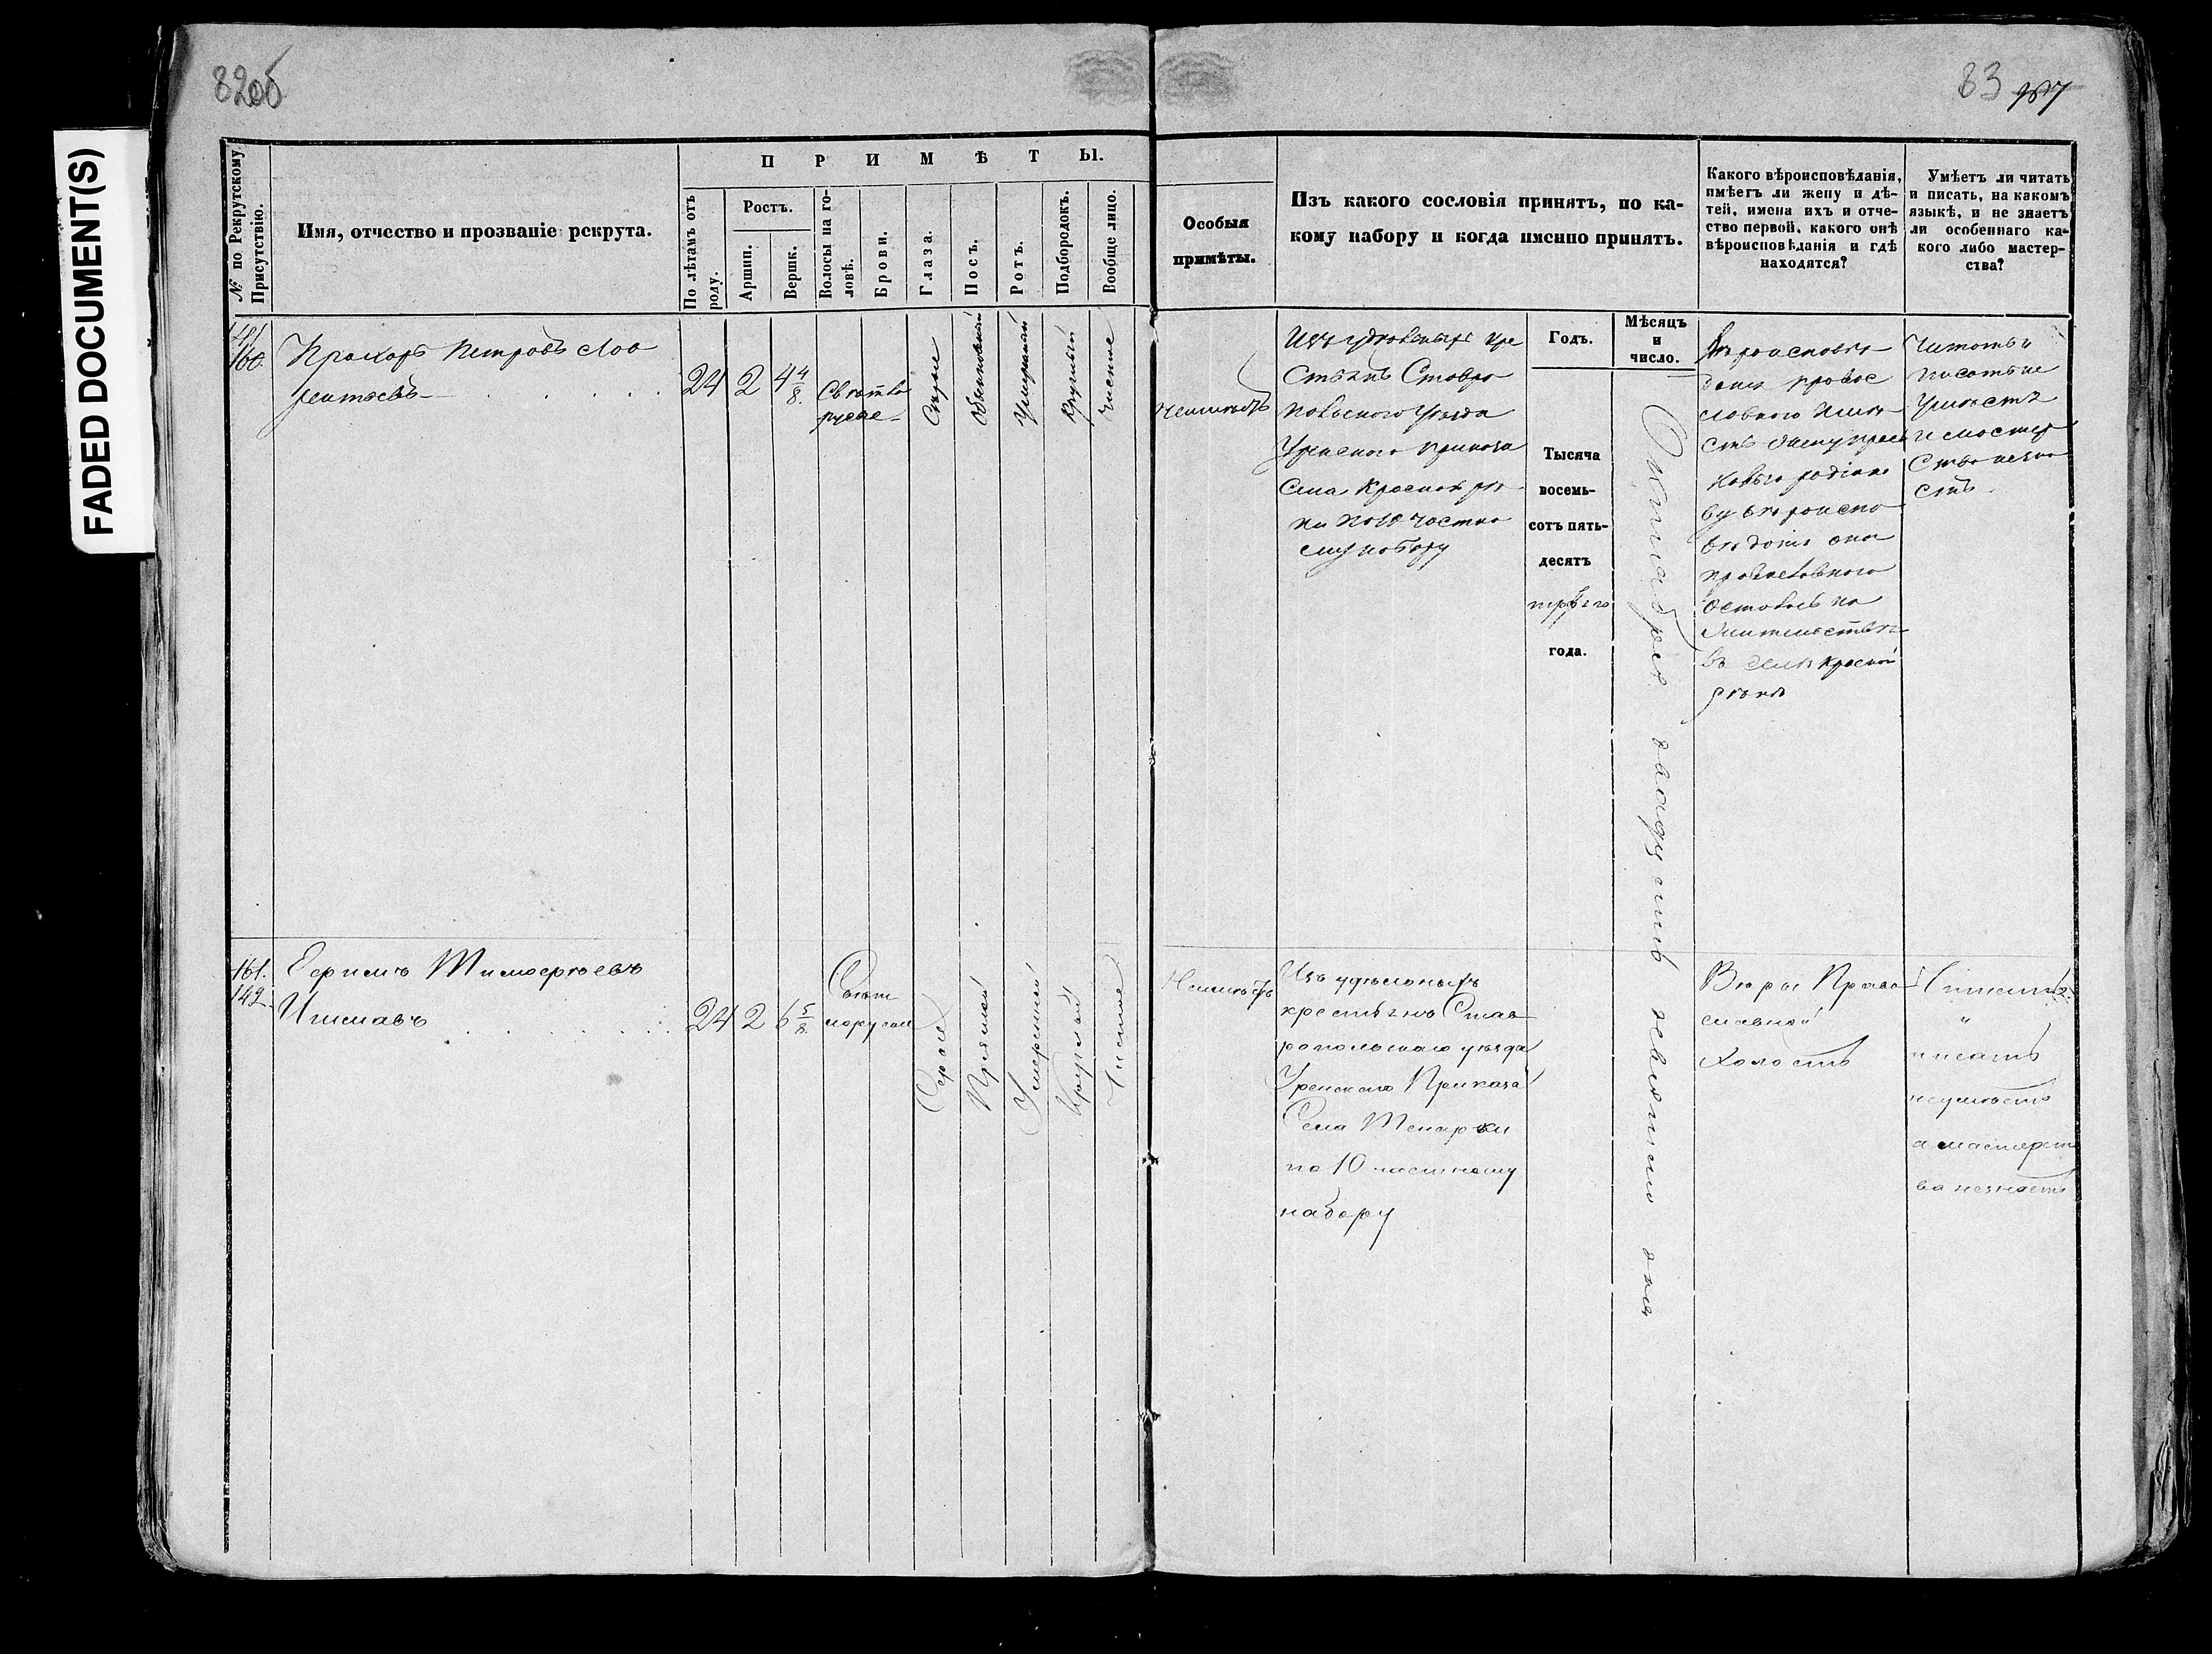 82об
83
FADED DOCUMENT(S)
№ по Рекрутскому Присутствію.
Имя, отчество и прозваніе рекрута.
ПРИМѢТЫ.
По лѣтамъ отъ роду.
Ростъ.
Аршин.
Вершк.
Волосы на головѣ.
Брови.
Глаза.
Носъ.
Ротъ.
Подбородокъ.
Вообще лицо.
Особыя
примѣты.
Изъ какого сословія принятъ, по ка-
кому набору и когда именно принятъ.
Какого вѣроисповѣданія,
имѣетъ ли жену и дѣ-
тей, имена ихъ и отче-
ство первой, какого онѣ
вѣроисповѣданія и гдѣ
находятся?
Умѣетъ ли читать
и писать, на какомъ
языкѣ, и не знаетъ
ли особеннаго ка-
кого либо мастер-
ства?
160.
Прохоръ Петровъ
24 2 4 4/8
Светло
русые
Серые
Обыкновенный
Умеренный
Круглый
Чистое
Неимеетъ
Изъ удельныхъ кре
стьянъ Ставро
польского уезда
Уренского приказа
села Красной ре
ки по 10 частно
му набору
Годъ.
Мѣсяцъ
и
число.
Тысяча
восемь-
сотъ пять-
десятъ
первого
года.
Октября двадцать девятого дня
Вероисповѣ
дания правос
лавного имѣ
етъ жену
вероиспо
ведания она
православного
осталась на
жительстве
въ селе Красной
реке
Читать и
писать не
умѣетъ
и мастер
ства незна
етъ
161.
142
Ефимъ Тимофеевъ
24 2 6 5/8
Свет
лорусые
Серые
Прямой
Умеренный
Круглый
Чистое
Неимеетъ
Изъ удельныхъ
крестьянъ Став
ропольского уезда
Уренского Приказа
Села Тенарки
по 10 частному
набору
Веры Право
славной
Холостъ
Читать
и
писать
неумеетъ
а мастерст
ва незнаетъ